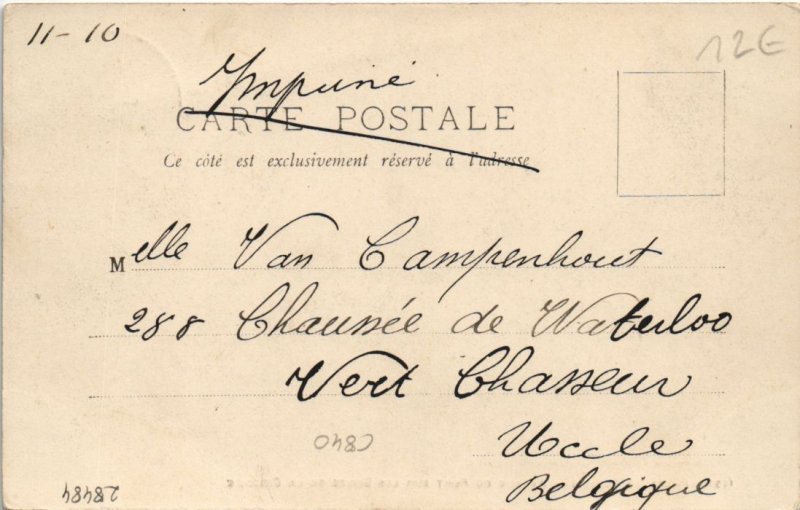 11-10
12€
Imprimé
CARTE POSTALE
Ce côté est exclusivement réservé à l'adresse
Melle Van Campenhout
288 Chaussée de Waterloo
Vert Chasseur
Uccle
Belgique
C840
28484